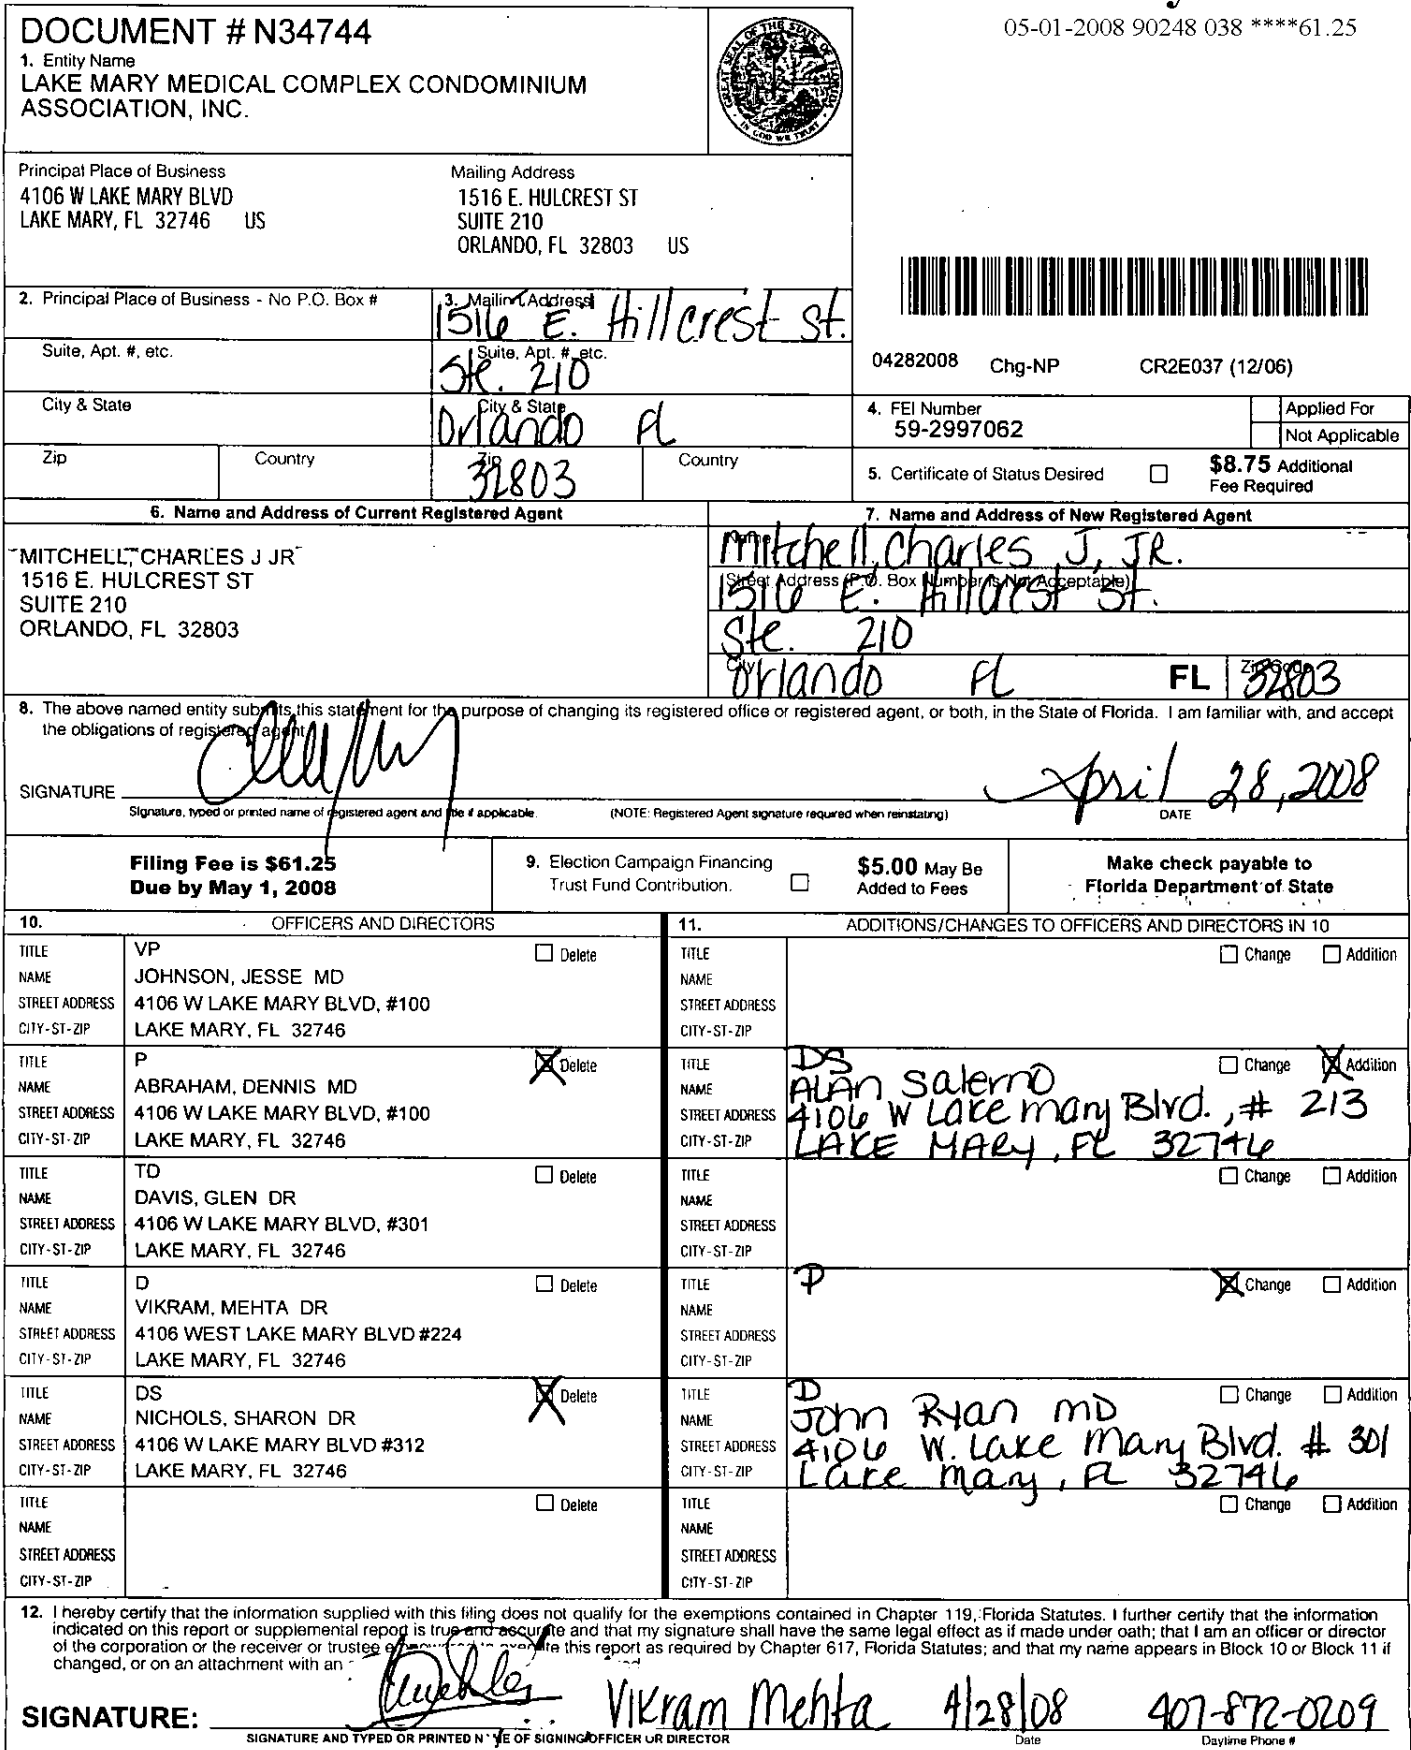 05-01-2008 90248 038 ****61.25
DOCUMENT # N34744
1. Entity Name
LAKE MARY MEDICAL COMPLEX CONDOMINIUM
ASSOCIATION, INC.
GREAT SEAL OF THE STATE OF FLORIDA
IN GOD WE TRUST
Principal Place of Business
4106 W LAKE MARY BLVD
LAKE MARY, FL 32746 US
Mailing Address
1516 E. HULCREST ST
SUITE 210
ORLANDO, FL 32803 US
2. Principal Place of Business - No P.O. Box #
3. Mailing Address
1516 E. Hillcrest St.
Suite, Apt. #, etc.
Suite, Apt. #, etc.
Ste. 210
City & State
City & State
Orlando FL
Zip
Country
Zip
32803
Country
04282008 Chg-NP CR2E037 (12/06)
4. FEI Number
59-2997062
Applied For
Not Applicable
5. Certificate of Status Desired
$8.75 Additional
Fee Required
6. Name and Address of Current Registered Agent
MITCHELL, CHARLES J JR
1516 E. HULCREST ST
SUITE 210
ORLANDO, FL 32803
7. Name and Address of New Registered Agent
Name
Mitchell, Charles J, JR.
Street Address (P.O. Box Number is Not Acceptable)
1516 E. Hillcrest St.
Ste. 210
City
Orlando FL
FL
Zip Code
32803
8. The above named entity submits this statement for the purpose of changing its registered office or registered agent, or both, in the State of Florida. I am familiar with, and accept
the obligations of registered agent.
SIGNATURE
April 28, 2008
Signature, typed or printed name of registered agent and title if applicable. (NOTE: Registered Agent signature required when reinstating) DATE
Filing Fee is $61.25
Due by May 1, 2008
9. Election Campaign Financing
Trust Fund Contribution.
$5.00 May Be
Added to Fees
Make check payable to
Florida Department of State
10. OFFICERS AND DIRECTORS
11. ADDITIONS/CHANGES TO OFFICERS AND DIRECTORS IN 10
TITLE VP Delete
NAME JOHNSON, JESSE MD
STREET ADDRESS 4106 W LAKE MARY BLVD, #100
CITY-ST-ZIP LAKE MARY, FL 32746
TITLE Change Addition
NAME
STREET ADDRESS
CITY-ST-ZIP
TITLE P Delete
NAME ABRAHAM, DENNIS MD
STREET ADDRESS 4106 W LAKE MARY BLVD, #100
CITY-ST-ZIP LAKE MARY, FL 32746
TITLE DS Change Addition
NAME ALAN Salerno
STREET ADDRESS 4106 W Lake Mary Blvd., # 213
CITY-ST-ZIP LAKE MARY, FL 32746
TITLE TD Delete
NAME DAVIS, GLEN DR
STREET ADDRESS 4106 W LAKE MARY BLVD, #301
CITY-ST-ZIP LAKE MARY, FL 32746
TITLE Change Addition
NAME
STREET ADDRESS
CITY-ST-ZIP
TITLE D Delete
NAME VIKRAM, MEHTA DR
STREET ADDRESS 4106 WEST LAKE MARY BLVD #224
CITY-ST-ZIP LAKE MARY, FL 32746
TITLE P Change Addition
NAME
STREET ADDRESS
CITY-ST-ZIP
TITLE DS Delete
NAME NICHOLS, SHARON DR
STREET ADDRESS 4106 W LAKE MARY BLVD #312
CITY-ST-ZIP LAKE MARY, FL 32746
TITLE D Change Addition
NAME John Ryan MD
STREET ADDRESS 4106 W. Lake Mary Blvd. # 301
CITY-ST-ZIP Lake Mary, FL 32746
TITLE Delete
NAME
STREET ADDRESS
CITY-ST-ZIP
TITLE Change Addition
NAME
STREET ADDRESS
CITY-ST-ZIP
12. I hereby certify that the information supplied with this filing does not qualify for the exemptions contained in Chapter 119, Florida Statutes. I further certify that the information
indicated on this report or supplemental report is true and accurate and that my signature shall have the same legal effect as if made under oath; that I am an officer or director
of the corporation or the receiver or trustee this report as required by Chapter 617, Florida Statutes; and that my name appears in Block 10 or Block 11 if
changed, or on an attachment with an
SIGNATURE: Vikram Mehta 4/28/08 407-872-0209
SIGNATURE AND TYPED OR PRINTED NAME OF SIGNING OFFICER OR DIRECTOR Date Daytime Phone #